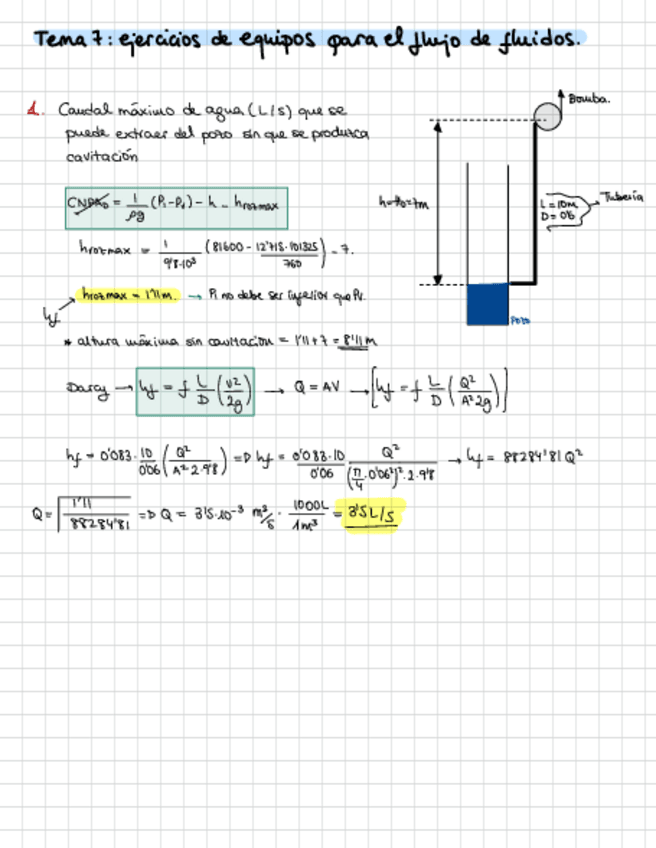 Tema 7: ejercicios de equipos para el flujo de fluidos.
1. Caudal máximo de agua (L/s) que se
puede extraer del pozo sin que se produzca
cavitación
Bomba.
L = 10m
D = 0'6
Tubería
POZO
CNPA0 = 1/ρg (P1-Pv) - h - hrozmax
hrozmax = 1/9'8·10³ (81600 - 12'718·101325/760) - 7.
hrozmax = 1'11m. → P1 no debe ser inferior que Pv.
hf
* altura máxima sin cavitacion = 1'11+7 = 8'11m
Darcy → hf = f L/D (v²/2g) → Q = AV → [hf = f L/D (Q²/A²2g)]
hf = 0'083·10/0'06 (Q²/A²·2·9'8) => hf = 0'083·10/0'06 Q²/(π/4·0'06²)²·2·9'8 → hf = 88284'81 Q²
Q = √1'11/88284'81 => Q = 3'5·10⁻³ m³/s · 1000L/1m³ = 3'5 L/s